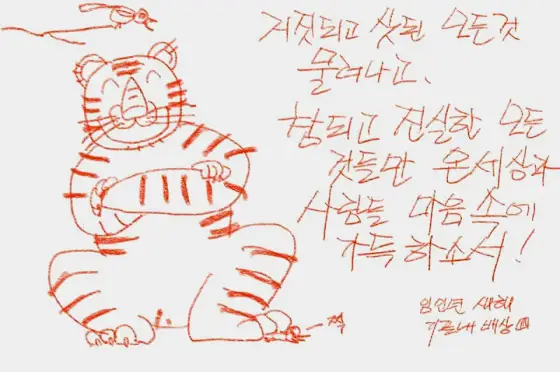 거짓되고 삿된 모든것
물러나고,
참되고 진실한 모든
것들만 온세상과
사람들 마음 속에
가득하소서!
임인년 새해
배상